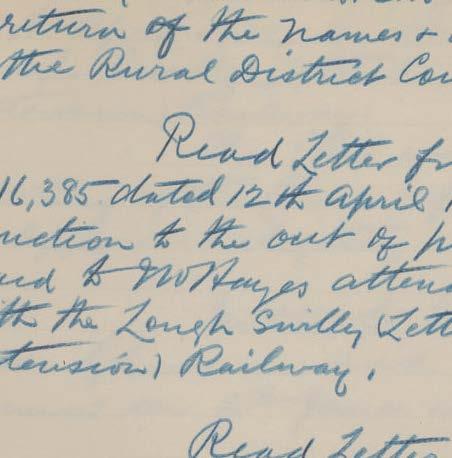 return of the names +
the Rural District Cou
Read Letter fr
16,385 dated 12th April 1
nction to the out of p
aid to Mr Hayes attend
ith the Lough Swilly (Lett
tension) Railway.
Read Letter